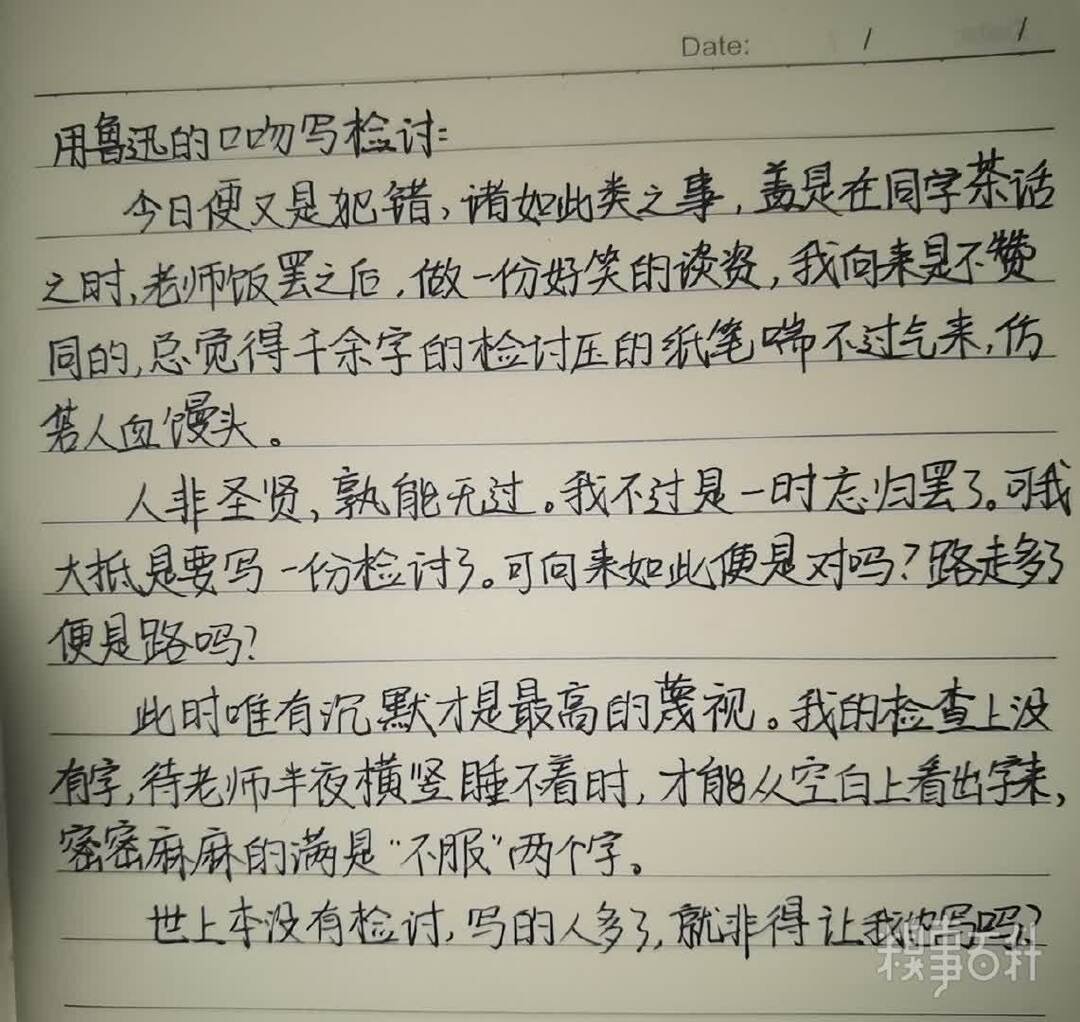 Date: / /
用鲁迅的口吻写检讨:
今日便又是犯错,诸如此类之事,盖是在同学茶话
之时,老师饭罢之后,做一份好笑的谈资,我向来是不赞
同的,总觉得千余字的检讨压的纸笔喘不过气来,仿
若人血馒头。
人非圣贤,孰能无过。我不过是一时忘归罢了。可我
大抵是要写一份检讨了。可向来如此便是对吗?路走多了
便是路吗?
此时唯有沉默才是最高的蔑视。我的检查上没
有字,待老师半夜横竖睡不着时,才能从空白上看出字来,
密密麻麻的满是“不服”两个字。
世上本没有检讨,写的人多了,就非得让我也写吗?
糗事百科